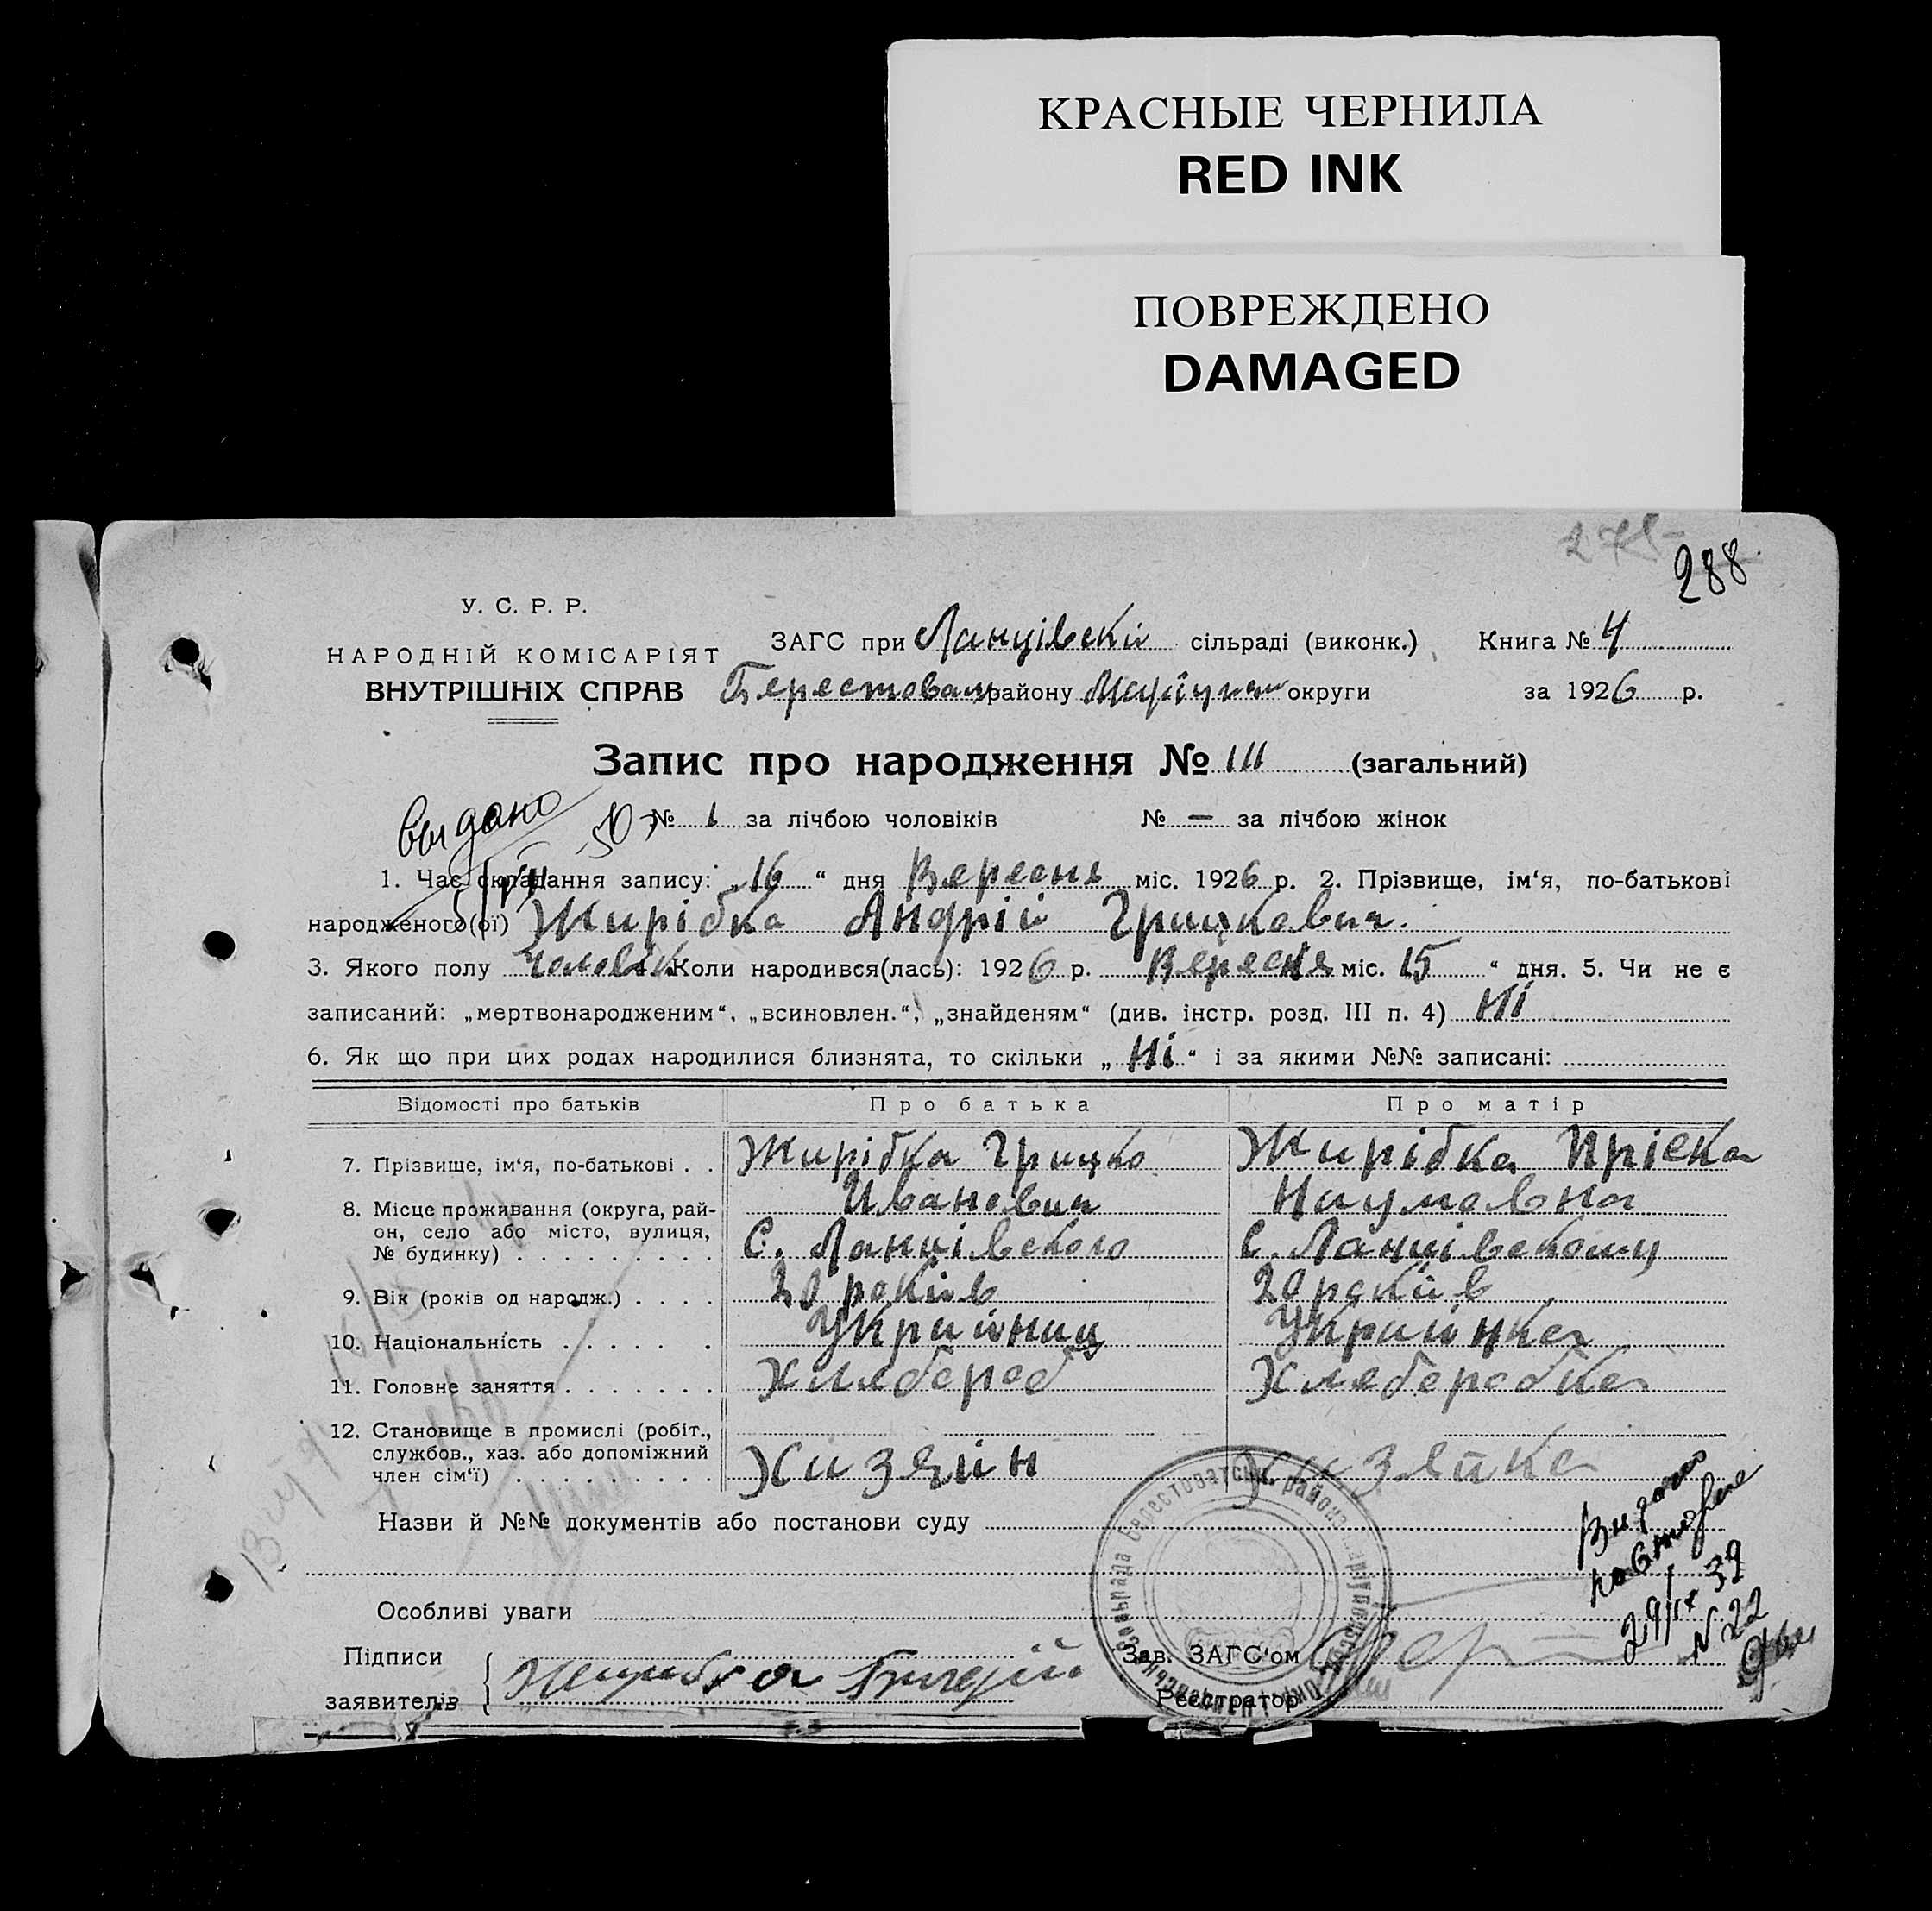 КРАСНЫЕ ЧЕРНИЛА
RED INK
ПОВРЕЖДЕНО
DAMAGED
288
У. С. Р. Р.
НАРОДНІЙ КОМІСАРІЯТ
ВНУТРІШНІХ СПРАВ
ЗАГС при Ланцівскій сільраді (виконк.) Книга № 4
району округи за 1926 р.
Запис про народження № 111 (загальний)
видано
№ 1 за лічбою чоловіків № — за лічбою жінок
1. Час складання запису: „16“ дня Вересня міс. 1926 р. 2. Прізвище, ім‘я, по-батькові
народженого(ої) Жирібка Андрій Грицкович.
3. Якого полу Чоловік Коли народився(лась): 1926 р. Вересня міс. 15 “ дня. 5. Чи не є
записаний: „мертвонародженим“, „всиновлен.“, „знайденям“ (див. інстр. розд. III п. 4) Ні
6. Як що при цих родах народилися близнята, то скільки „Ні“ і за якими №№ записані:
Відомості про батьків Про батька Про матір
7. Прізвище, ім‘я, по-батькові . . Жирібка Грицко Жирібка Пріска
Иванович Наумовна
8. Місце проживання (округа, рай-
он, село або місто, вулиця,
№ будинку) . . . . . . . . . С. Ланцівского С. Ланцівскому
9. Вік (років од народж.) . . . . 20 рокив 20 рокив
10. Національність . . . . . . Украйинец Украйинка
11. Головне заняття . . . . . . . Хлебороб Хлеборобка
12. Становище в промислі (робіт.,
службов., хаз. або допоміжний
член сім‘ї) . . . . . . . . . Хазяин Хазяйка
Назви й №№ документів або постанови суду
Особливі уваги
Видано
повторне
29/IX 39
N 22
Підписи
заявителів
Жирибка
Зав. ЗАГС‘ом
Реєстратор